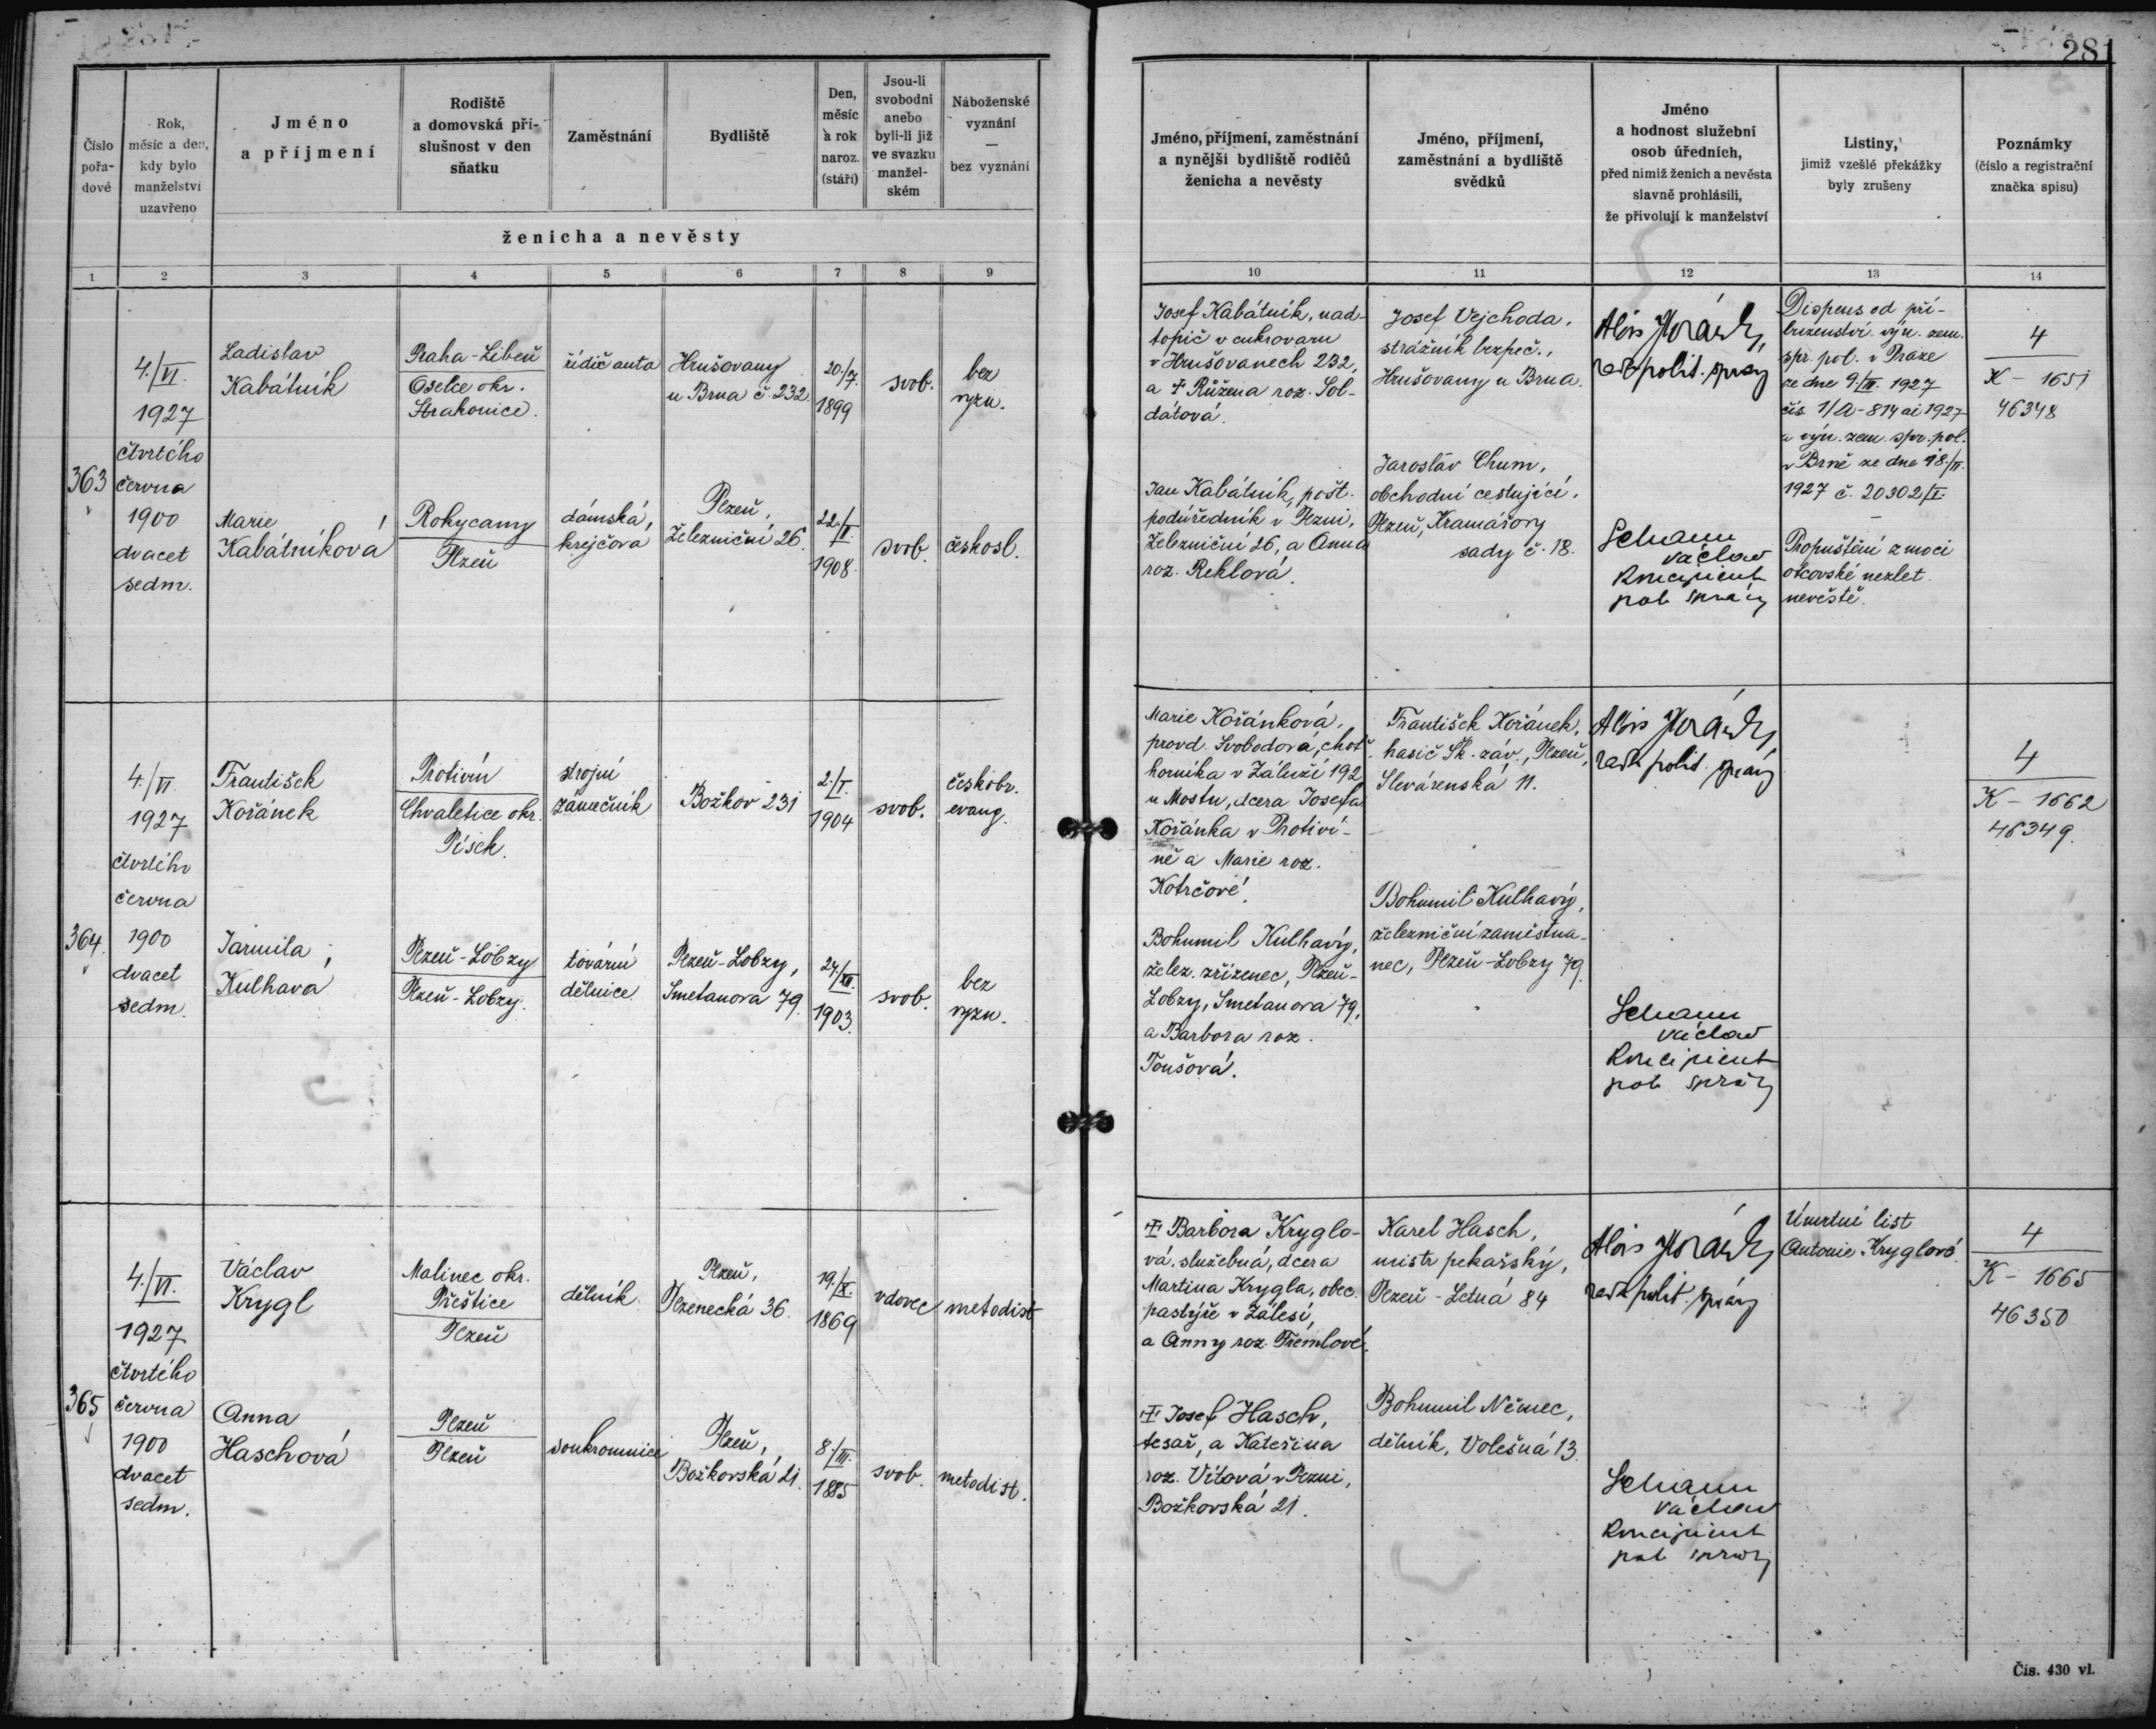 281
Číslo pořa-dové
Rok, měsíc a den, kdy bylo manželství uzavřeno
Jméno a příjmení
Rodiště a domovská pří-slušnost v den sňatku
Zaměstnání
Bydliště
Den, měsíc a rok naroz. (stáří)
Jsou-li svobodni anebo byli-li již ve svazku manžel-ském
Náboženské vyznání — bez vyznání
ženicha a nevěsty
Jméno, příjmení, zaměstnání a nynější bydliště rodičů ženicha a nevěsty
Jméno, příjmení, zaměstnání a bydliště svědků
Jméno a hodnost služební osob úředních, před nimiž ženich a nevěsta slavně prohlásili, že přivolují k manželství
Listiny, jimiž vzešlé překážky byly zrušeny
Poznámky (číslo a registrační značka spisu)
1 2 3 4 5 6 7 8 9 10 11 12 13 14
363
4./VI.
1927
čtvrtého
června
1900
dvacet
sedm.
Ladislav
Kabátník
Praha-Libeň
Oselce okr.
Strakonice.
řidič auta
Hrušovany
u Brna č. 232.
20./7.
1899
svob.
bez
vyzn.
Marie
Kabátníková
Rokycany
Plzeň
dámská
krejčová
Plzeň,
Železniční 26.
22./II.
1908.
svob.
českosl.
Josef Kabátník, nad-
topič v cukrovaru
v Hrušovanech 232,
a † Růžena roz. Sol-
dátová.
Jan Kabátník, pošt.
podúředník v Plzni,
Železniční 26, a Anna
roz. Reklová.
Josef Vejchoda,
strážník bezpeč.,
Hrušovany u Brna.
Jaroslav Chum,
obchodní cestující,
Plzeň, Kramářovy
sady č. 18.
Alois
rada polit. správy
Václav
koncipient
pol. správy
Dispens od pří-
buzenství výn. zem.
spr. pol. v Praze
ze dne 9./III. 1927
čís. 1/A-814 ai 1927
a výn. zem. spr. pol.
v Brně ze dne 18./II.
1927 č. 20302/I.
Propuštění z moci
otcovské nezlet.
nevěstě.
4
K - 1651
46348
364.
4./VI.
1927
čtvrtého
června
1900
dvacet
sedm.
František
Kořánek
Protivín
Chvaletice okr.
Písek.
strojní
zámečník
Božkov 231
2./I.
1904
svob.
českobr.
evang.
Jarmila
Kulhavá
Plzeň-Lobzy
Plzeň-Lobzy.
tovární
dělnice.
Plzeň-Lobzy,
Smetanova 79.
24./XII.
1903.
svob.
bez
vyzn.
Marie Kořánková,
provd. Svobodová, choť
horníka v Záluží 192
u Mostu, dcera Josefa
Kořánka v Protiví-
ně a Marie roz.
Kotrčové.
Bohumil Kulhavý,
želez. zřízenec, Plzeň-
Lobzy, Smetanova 79,
a Barbora roz.
Toušová.
František Kořánek,
hasič Šk. záv., Plzeň,
Slevárenská 11.
Bohumil Kulhavý,
železniční zaměstna-
nec, Plzeň-Lobzy 79.
Alois
rada polit. správy
Václav
koncipient
pol. správy
4
K - 1662
46349.
365
4./VI.
1927
čtvrtého
června
1900
dvacet
sedm.
Václav
Krygl
Malinec okr.
Přeštice
Plzeň
dělník
Plzeň,
Plzenecká 36.
19./X.
1869
vdovec
metodist
Anna
Haschová
Plzeň
Plzeň
soukromnice
Plzeň,
Božkovská 21.
8./III.
1885
svob.
metodist.
† Barbora Kryglo-
vá, služebná, dcera
Martina Krygla, obec.
pastýře v Zálesí,
a Anny roz. Třemlové.
† Josef Hasch,
tesař, a Kateřina
roz. Vítová v Plzni,
Božkovská 21.
Karel Hasch,
mistr pekařský,
Plzeň-Letná 84
Bohumil Němec,
dělník, Volešná 13.
Alois
rada polit. správy
Václav
koncipient
pol. správy
Úmrtní list
Antonie Kryglové.
4
K - 1665
46350
Čís. 430 vl.